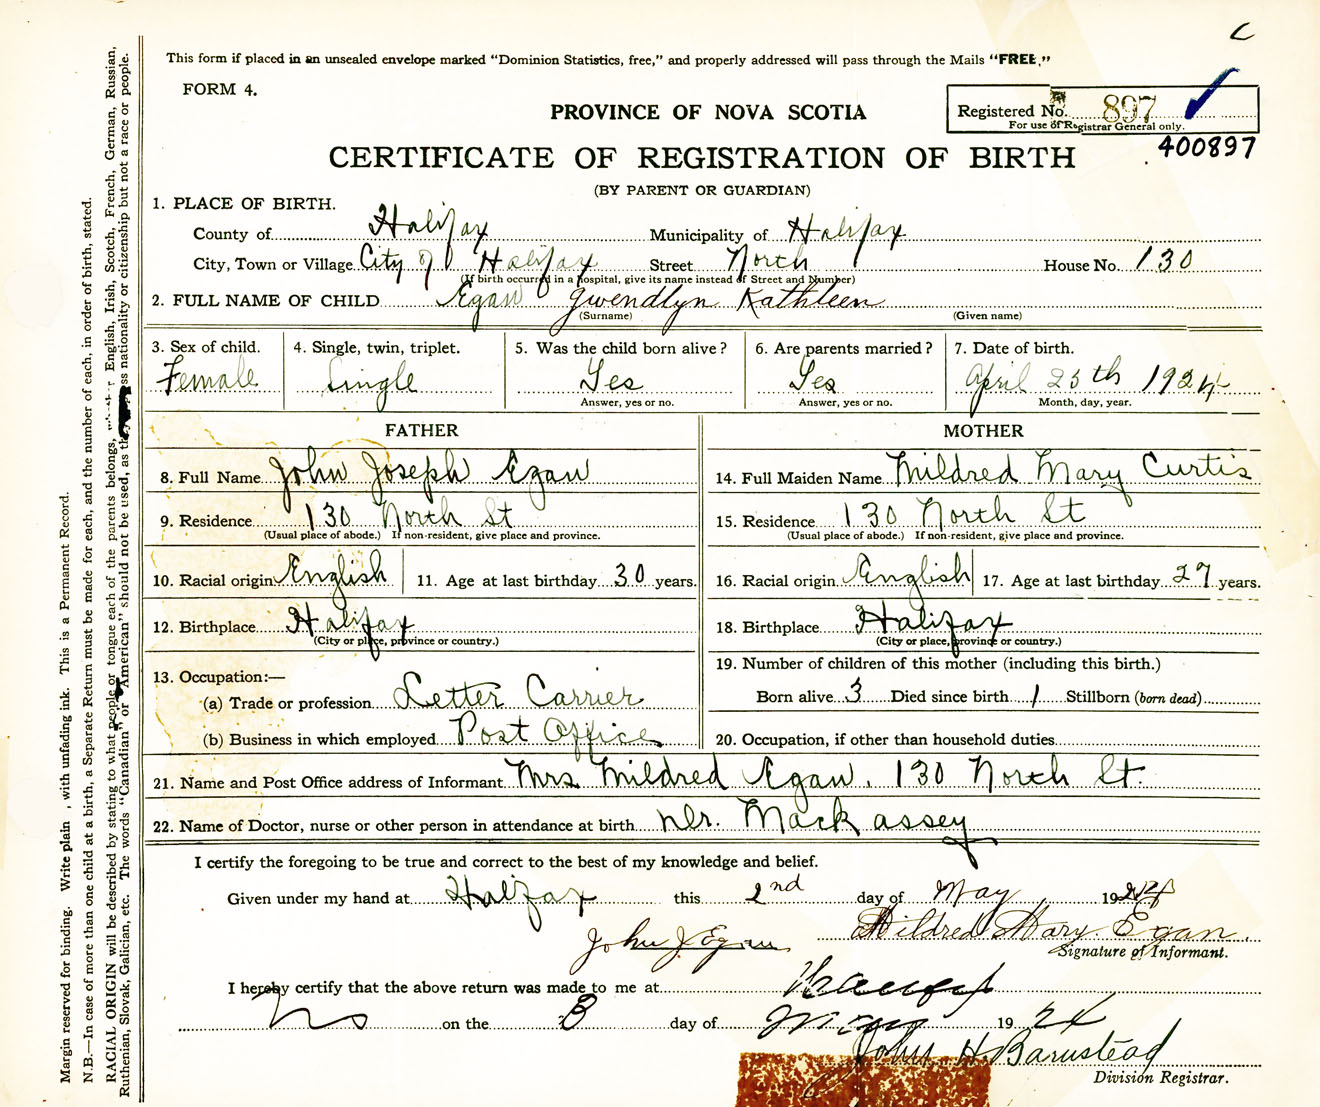 C
This form if placed in an unsealed envelope marked "Dominion Statistics, free," and properly addressed will pass through the Mails "FREE."
FORM 4.
PROVINCE OF NOVA SCOTIA
Registered No. 897
For use of Registrar General only.
400897
CERTIFICATE OF REGISTRATION OF BIRTH
(BY PARENT OR GUARDIAN)
1. PLACE OF BIRTH.
County of Halifax Municipality of Halifax
City, Town or Village City of Halifax Street North House No. 130
(If birth occurred in a hospital, give its name instead of Street and Number)
2. FULL NAME OF CHILD Egan Gwendlyn Kathleen
(Surname) (Given name)
3. Sex of child. 4. Single, twin, triplet. 5. Was the child born alive? 6. Are parents married? 7. Date of birth.
Female Single Yes Yes April 25th 1924
Answer, yes or no. Answer, yes or no. Month, day, year.
FATHER MOTHER
8. Full Name John Joseph Egan 14. Full Maiden Name Mildred Mary Curtis
9. Residence 130 North St 15. Residence 130 North St
(Usual place of abode.) If non-resident, give place and province. (Usual place of abode.) If non-resident, give place and province.
10. Racial origin English 11. Age at last birthday 30 years. 16. Racial origin English 17. Age at last birthday 27 years.
12. Birthplace Halifax 18. Birthplace Halifax
(City or place, province or country.) (City or place, province or country.)
13. Occupation:— 19. Number of children of this mother (including this birth.)
(a) Trade or profession Letter Carrier Born alive 3 Died since birth 1 Stillborn (born dead)
(b) Business in which employed Post Office 20. Occupation, if other than household duties
21. Name and Post Office address of Informant Mrs Mildred Egan, 130 North St.
22. Name of Doctor, nurse or other person in attendance at birth Dr. Mackassey
I certify the foregoing to be true and correct to the best of my knowledge and belief.
Given under my hand at Halifax this 2nd day of May 1924
John J. Egan Mildred Mary. Egan.
Signature of Informant.
I hereby certify that the above return was made to me at Halifax
NS on the 3 day of May 1924
John H. Barnstead
Division Registrar.
Margin reserved for binding. Write plain, with unfading ink. This is a Permanent Record.
N.B.—In case of more than one child at a birth, a Separate Return must be made for each, and the number of each, in order of birth, stated.
RACIAL ORIGIN will be described by stating to what people or tongue each of the parents belongs, English, Irish, Scotch, French, German, Russian,
Ruthenian, Slovak, Galician, etc. The words "Canadian" or "American" should not be used, as they nationality or citizenship but not a race or people.